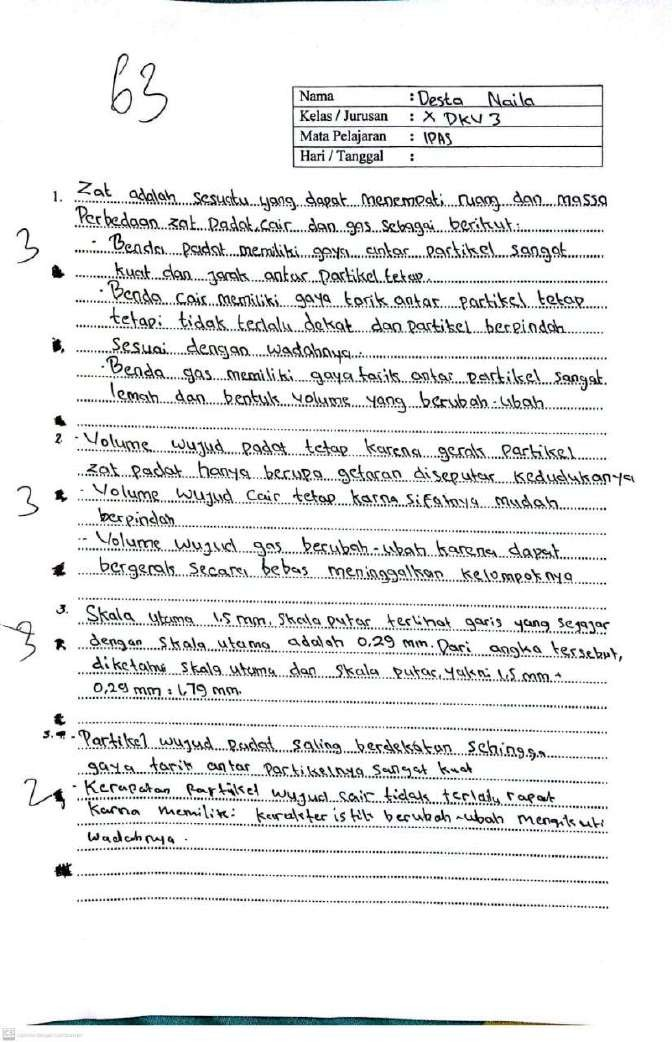 63
Nama : Desta Naila
Kelas / Jurusan : X DKV 3
Mata Pelajaran : IPAS
Hari / Tanggal :
1. Zat adalah sesuatu yang dapat menempati ruang dan massa
Perbedaan zat padat, cair dan gas sebagai berikut:
3
- Benda padat memiliki gaya antar partikel sangat
kuat dan jarak antar partikel tetap.
- Benda cair memiliki gaya tarik antar partikel tetap
tetapi tidak terlalu dekat dan partikel berpindah
sesuai dengan wadahnya.
- Benda gas memiliki gaya tarik antar partikel sangat
lemah dan bentuk volume yang berubah-ubah
2 - Volume wujud padat tetap karena gerak partikel
zat padat hanya berupa getaran diseputar kedudukanya
3
- Volume wujud cair tetap karna sifatnya mudah
berpindah
- Volume wujud gas berubah-ubah karena dapat
bergerak secara bebas meninggalkan kelompoknya
3. Skala utama 1.5 mm, skala putar terlihat garis yang sejajar
3
dengan skala utama adalah 0,29 mm. Dari angka tersebut,
diketahui skala utama dan skala putar, yakni 1,5 mm +
0,29 mm = 1,79 mm.
- Partikel wujud padat saling berdekatan sehingga
gaya tarik antar partikelnya sangat kuat
2
- Kerapatan partikel wujud cair tidak terlalu rapat
karna memiliki karakteristik berubah-ubah mengikuti
wadahnya.